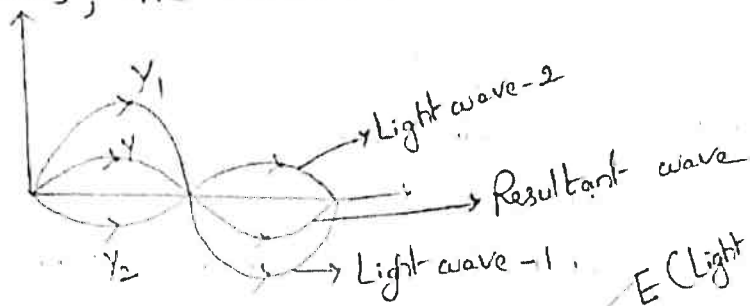 Y₁
Light wave-2
Y
Resultant wave
Y₂
Light wave-1.
E (Light